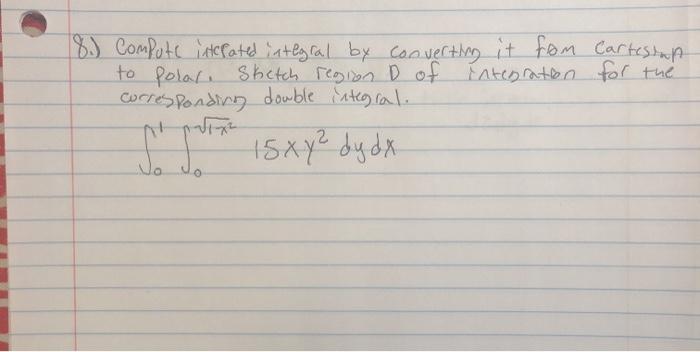 8.) Compute interated integral by converting it from Cartesian
to Polar. Sketch region D of integration for the
corresponding double integral.
∫₀¹ ∫₀^√(1-x²) 15xy² dy dx